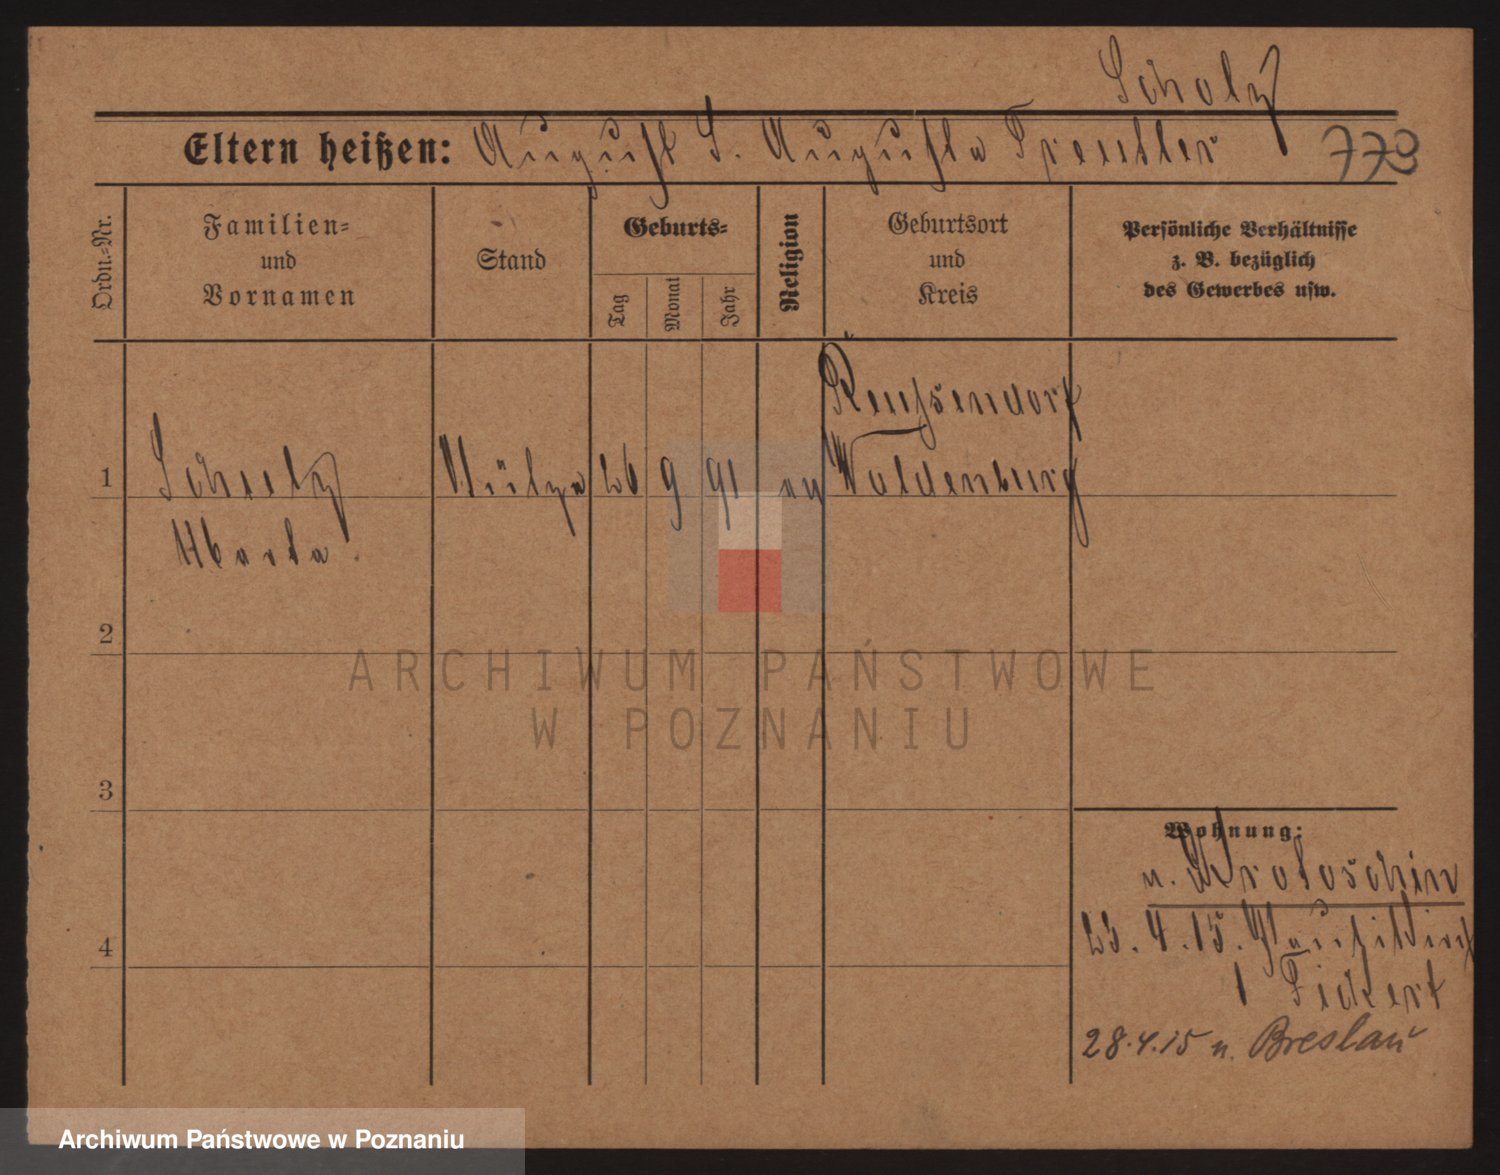 Scholz
Eltern heißen: August S. Augusta Treutler 773
Ordn.=Nr.
Familien=
und
Vornamen
Stand
Geburts=
Tag
Monat
Jahr
Religion
Geburtsort
und
Kreis
Persönliche Verhältnisse
z. B. bezüglich
des Gewerbes usw.
Reussendorf
1 Scholz 26 9 91 ev Waldenburg
2
3
Wohnung:
n. Krotoschin
23.4.15.
4
1 Tickert
28.4.15 n. Breslau
ARCHIWUM PAŃSTWOWE
W POZNANIU
Archiwum Państwowe w Poznaniu